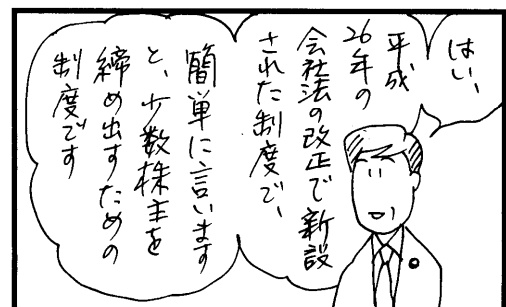 はい、
平成
26年の
会社法の改正で新設
された制度で、
簡単に言います
と、少数株主を
締め出すための
制度です